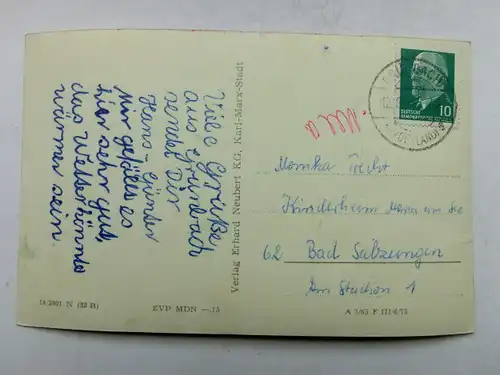 Viele Grüße
aus Grünbach
sendet Dir
Hans-Günter
Mir gefällt es
hier sehr gut
das Wetter könnte
wärmer sein.
14/2801 N (23 B)
EVP MDN —.15
Verlag Erhard Neubert KG, Karl-Marx-Stadt
10
DEUTSCHE
DEMOKRATISCHE
Monika
Kinderheim
62 Bad Salzungen
Am Stadion 1
A 3/65 F III/6/15